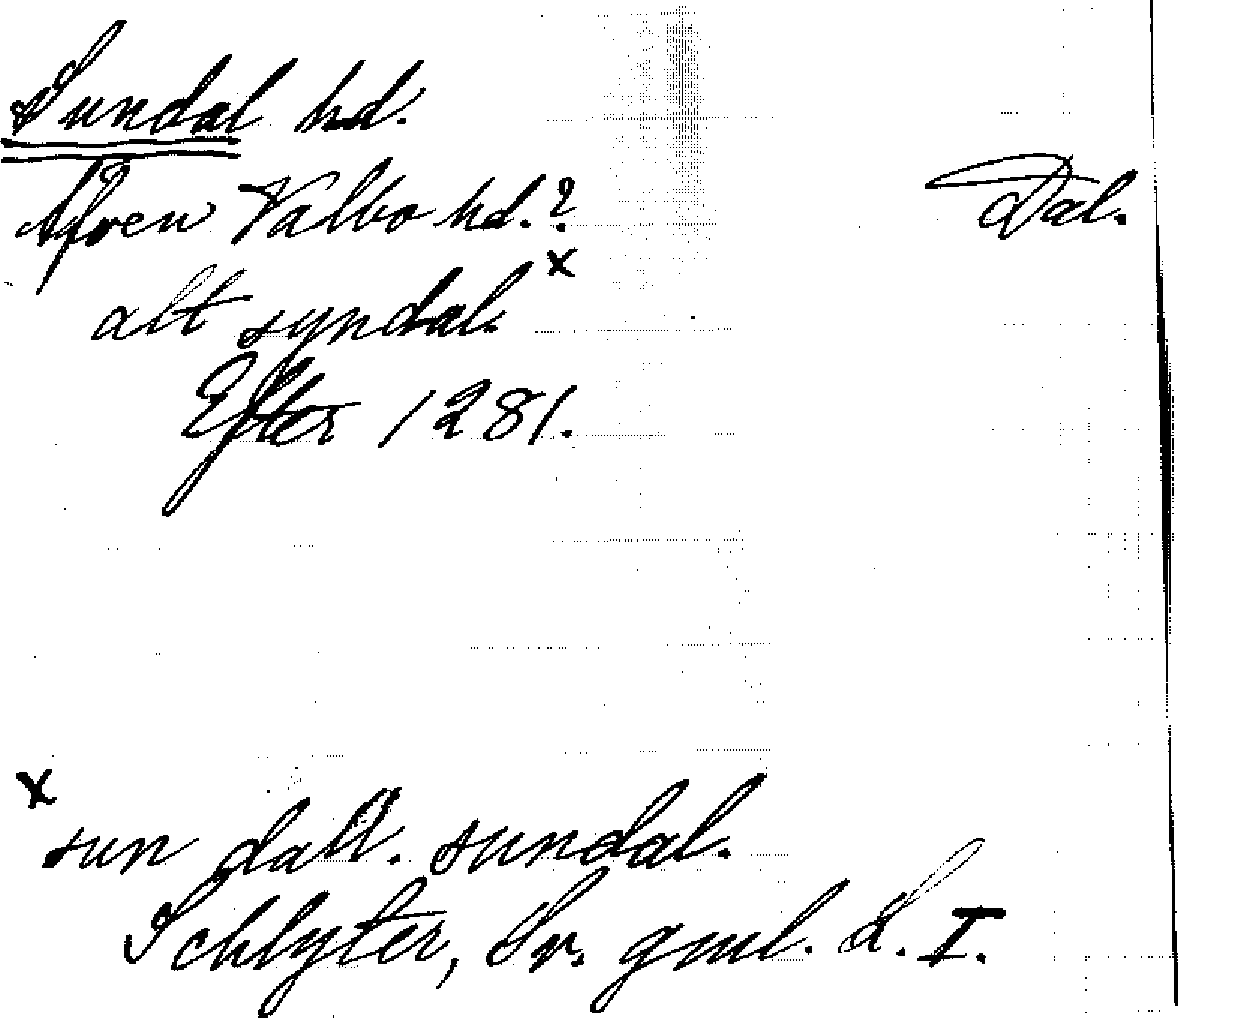 Sundal hd.
Äfven Valbo hd.?
Dal.
alt syndal. x
Efter 1281.
x
sun dall. sundal.
Schlyter, Sv. gml. L. I.